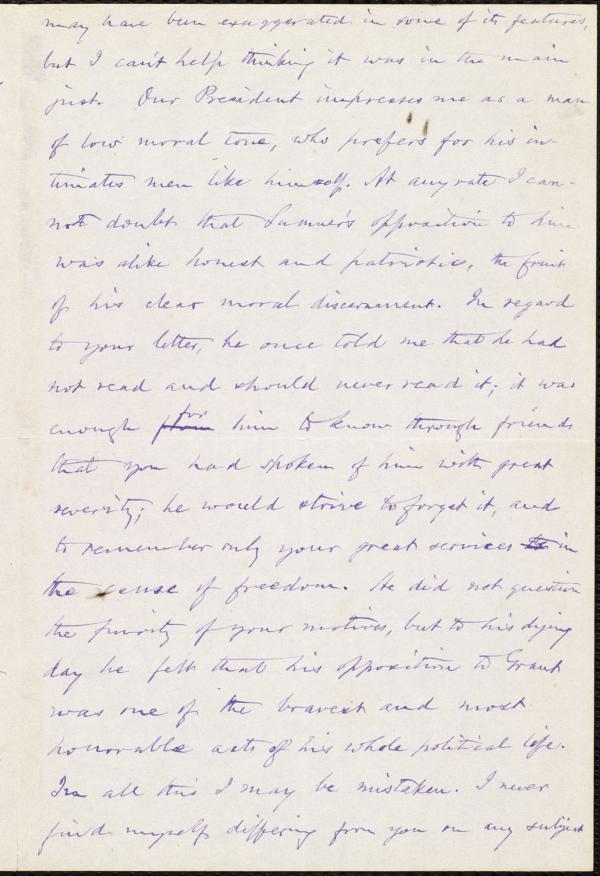 may have been exaggerated in some of its features,
but I can't help thinking it was in the main
just. Our President impresses me as a man
of low moral tone, who prefers for his in-
timates men like himself. At any rate I can-
not doubt that Sumner's opposition to him
was alike honest and patriotic, the fruit
of his clear moral discernment. In regard
to your letter, he once told me that he had
not read and should never read it; it was
enough for him to know through friends
that you had spoken of him with great
severity; he would strive to forget it, and
to remember only your great services in
the cause of freedom. He did not question
the purity of your motives, but to his dying
day he felt that his opposition to Grant
was one of the bravest and most
honorable acts of his whole political life.
In all this I may be mistaken. I never
find myself differing from you on any subject